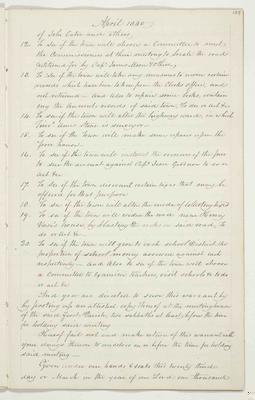 April 1840
of John Tator and others,
12. To see if the town will choose a Committee to meet
the Commissioners at their meeting to locate the road
petitioned for by Capt James Stone & others,
13. To see if the town will take any measures to procure certain
records which have been taken from the Clerks office, and
not returned - and also to repair some books, contain-
ing the Ancient records of said town, to do or act &c
14. To see if the town will alter the highway wards, in which
is surveyor.
15. To see if the town will make some repairs upon the
Poor house
16. To see if the town will instruct the overseers of the Poor
to sue the account against Capt Isaac to do or
act &c
17. To see if the town will discount certain taxes that may be
offered for that purpose
18. To see if the town will alter the mode of collecting taxes
19. To see if the town will widen the road near Henry
house, by blasting the rocks in said road, to
do or act &c
20. To see if the town will give to each school District the
proportion of school money accrued against such
respectively - and also to see if the town will choose
a Committee to examine teachers, visit schools &c to do
or act &c
And you are directed to serve this warrant by
by posting up an attested copy thereof at the meetinghouse
of the said first Parish, two sabbaths at least, before the time
for holding said meeting
Hereof fail not and make return of this warrant with
your doings thereon to ourselves on or before the time for holding
said meeting -
Given under our hands & seals this twenty third
day of March in the year of our Lord one thousand